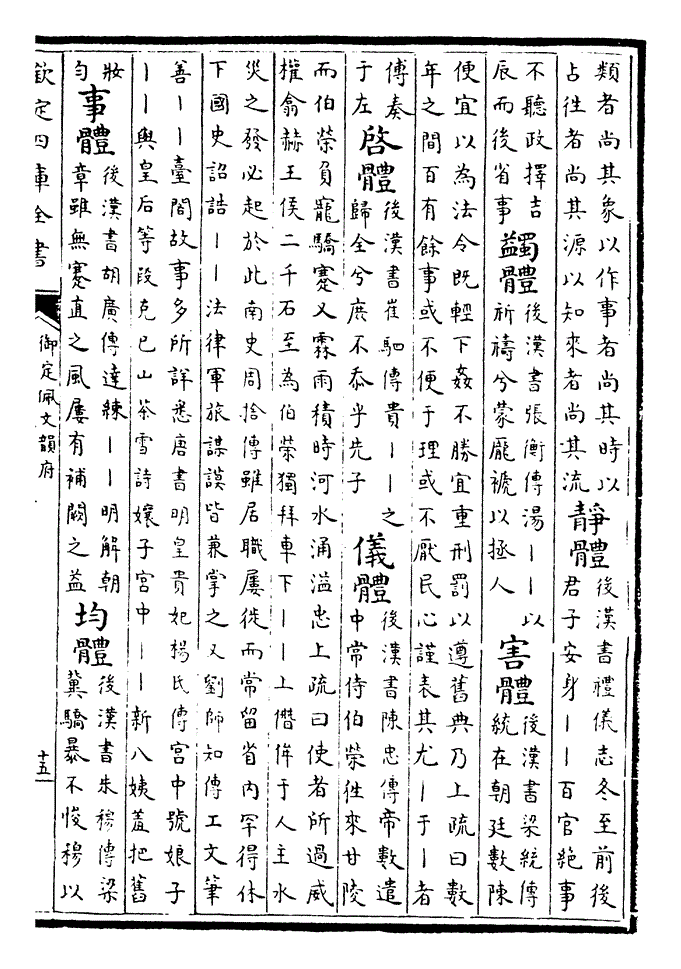 類者尚其象以作事者尚其時以
占徃者尚其源以知來者尚其流
靜體
後漢書禮儀志冬至前後
君子安身丨丨百官絶事
不聽政擇吉
辰而後省事
蠲體
後漢書張衡傳湯丨丨以
祈禱兮蒙厖禠以拯人
害體
後漢書梁統傳
統在朝廷數陳
便宜以為法令既輕下姦不勝宜重刑罰以遵舊典乃上疏曰數
年之間百有餘事或不便于理或不厭民心謹表其尤丨于丨者
傅奏
于左
啓體
後漢書崔駰傳貴丨丨之
歸全兮庶不忝乎先子
儀體
後漢書陳忠傳帝數遣
中常侍伯榮徃來甘陵
而伯榮負寵驕蹇又霖雨積時河水涌溢忠上疏曰使者所過威
權翕赫王侯二千石至為伯榮獨拜車下丨丨上僭侔于人主水
災之發必起於此南史周捨傳雖居職屢徙而常留省内罕得休
下國史詔誥丨丨法律軍旅謀謨皆兼掌之又劉師知傳工文筆
善丨丨臺閣故事多所詳悉唐書明皇貴妃楊氏傳宮中號娘子
丨丨與皇后等段克已山茶雪詩孃子宮中丨丨新八姨羞把舊
妝
勻
事體
後漢書胡廣傳達練丨丨明解朝
章雖無蹇直之風屢有補闕之益
均體
後漢書朱穆傳梁
冀驕暴不悛穆以
欽定四庫全書
御定佩文韻府
十五